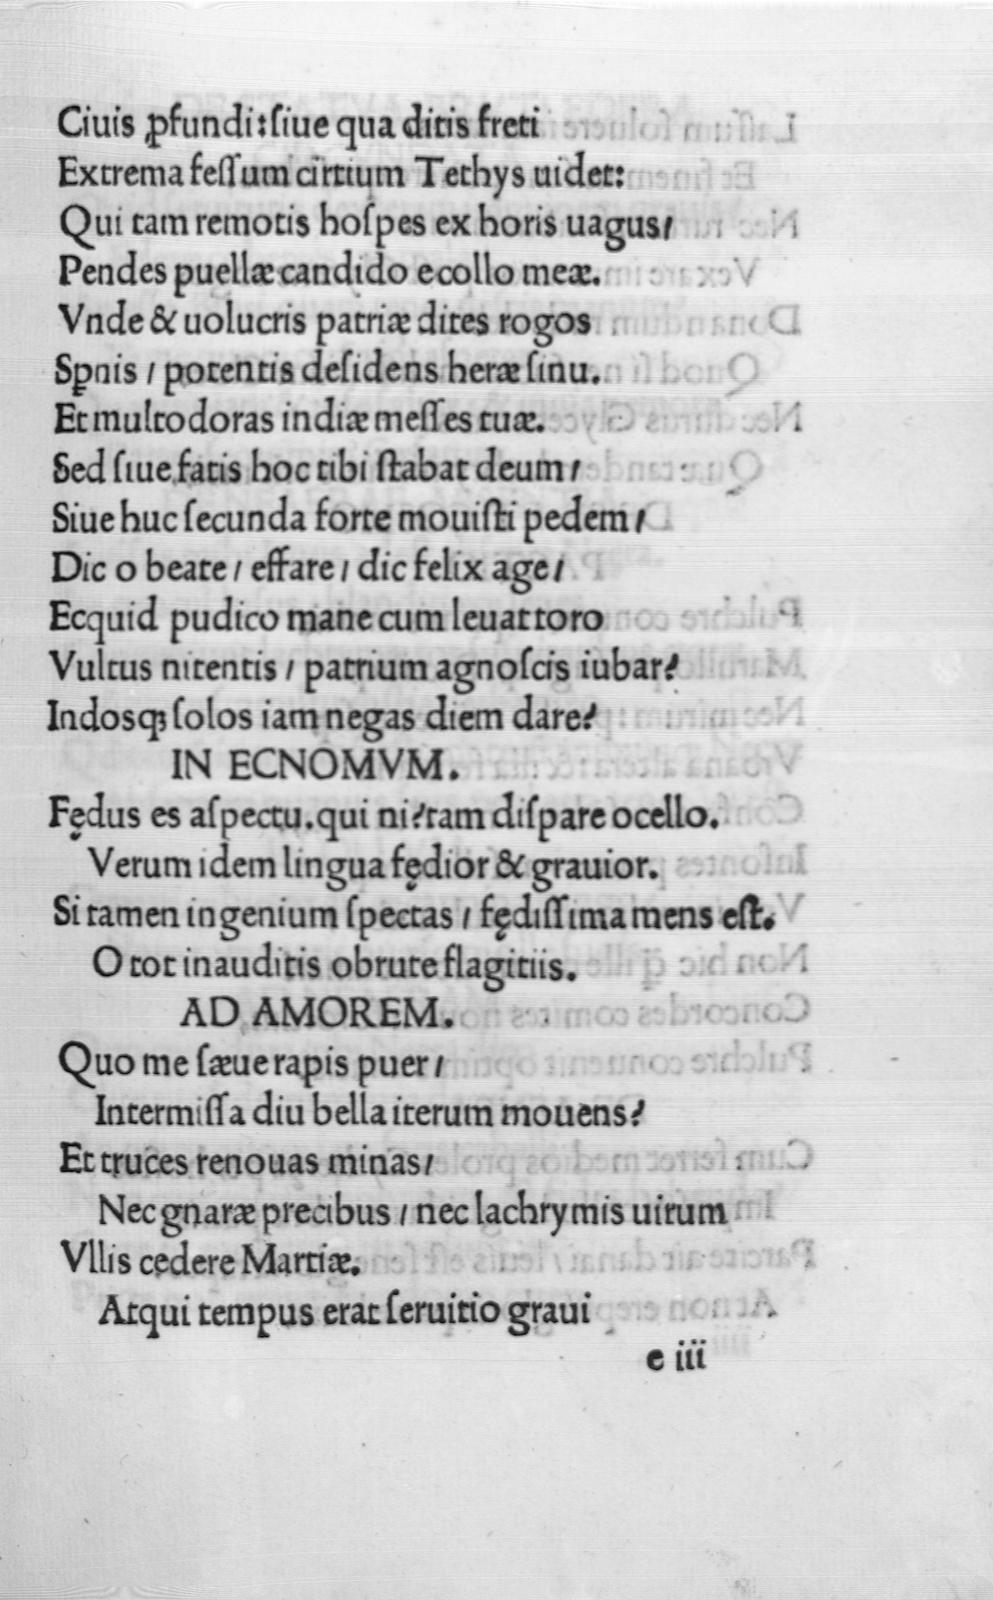 Ciuis ꝓfundi:ſiue qua ditis freti
Extrema feſſum cirtium Tethys uidet:
Qui tam remotis hoſpes ex horis uagus/
Pendes puellæ candido e collo meæ.
Vnde & uolucris patriæ dites rogos
Sꝑnis / potentis deſidens heræ ſinu.
Et multo doras indiæ meſſes tuæ.
Sed ſiue fatis hoc tibi ſtabat deum/
Siue huc ſecunda forte mouiſti pedem/
Dic o beate/ effare/ dic felix age/
Ecquid pudico mane cum leuat toro
Vultus nitentis / patrium agnoſcis iubar?
Indosqꝫ ſolos iam negas diem dare?
IN ECNOMVM.
Fędus es aſpectu.qui ni?tam diſpare ocello.
Verum idem lingua fędior & grauior.
Si tamen ingenium ſpectas / fędiſſima mens eſt.
O tot inauditis obrute flagitiis.
AD AMOREM.
Quo me ſæue rapis puer/
Intermiſſa diu bella iterum mouens?
Et truces renouas minas/
Nec gnaræ precibus / nec lachrymis uirum
Vllis cedere Martiæ.
Atqui tempus erat ſeruitio graui
e iii